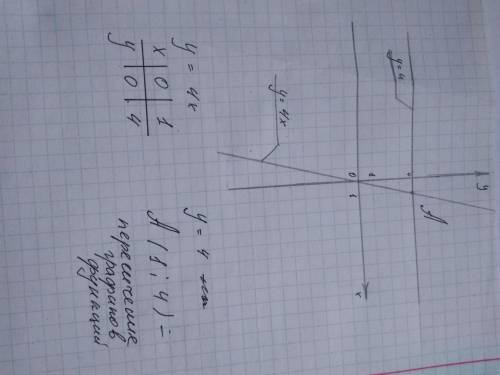 y
y = 4
A
1
0
1
x
y = 4x
y = 4x
x | 0 | 1
y | 0 | 4
y = 4
A (1; 4) =
пересечение
графиков
функций